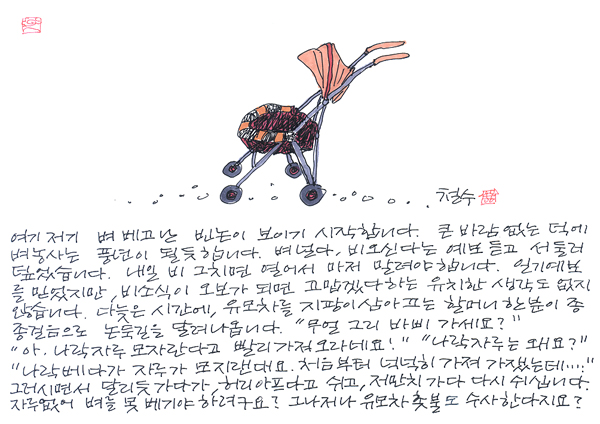 철수
여기저기 벼 베고난 빈논이 보이기 시작합니다. 큰 바람 없는 덕에
벼농사는 풍년이 될듯합니다. 벼널다, 비오신다는 예보 듣고 서둘러
덮었습니다. 내일 비 그치면 열어서 마저 말려야합니다. 일기예보
를 믿었지만, 비소식이 오보가 되면 고맙겠다하는 유치한 생각도 없지
않습니다. 다늦은 시간에, 유모차를 지팡이삼아 끄는 할머니 한분이 종
종걸음으로 논둑길을 달려나옵니다. "무얼 그리 바삐 가세요?"
"아. 나락자루 모자란다고 빨리 가져오라네요!" "나락자루는 왜요?"
"나락베다가 자루가 모지랜대요. 처음부터 넉넉히 가져 가잤는데....."
그러시면서 달리듯가다가, 허리아프다고 쉬고, 저만치 가다 다시 쉬십니다.
자루없어 벼를 못 베기야 하려구요? 그나저나 유모차 촛불도 수사한다지요?